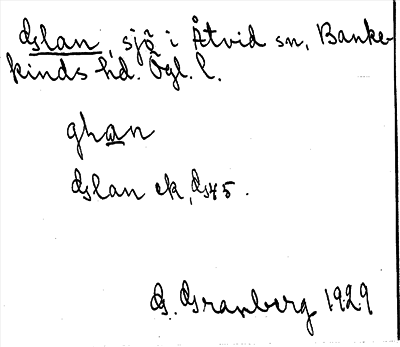 Glan, sjö i Åtvid sn, Banke-
kinds hd. Ögl. l.
ghan
Glan ek, G45.
G. Granberg 1929